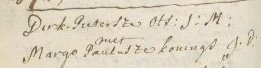 Dirk Pietersze Ott: J: M:
met
Margo Paulusze konings J. D: